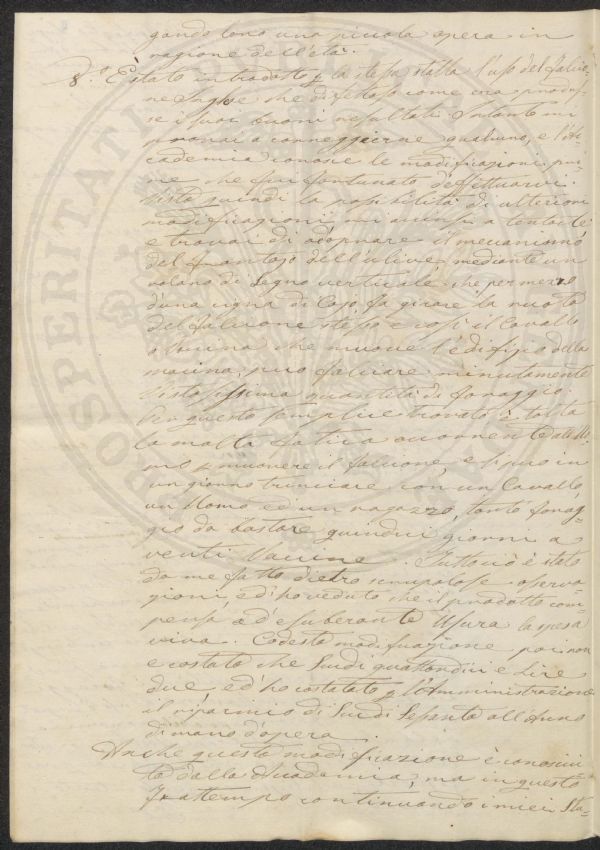 gando sono una piccola opera in
ragione dell'età.
8.° È stato introdotto p la stessa stalla l'uso del Falcio-
ne Inglese che difettoso come era produs-
se i suoi buoni resultati. Intanto mi
provai a correggerne qualcuno, e l'Ac-
cademia conosce le modificazioni pri-
me che fui fortunato d'effettuarvi.
Vista quindi la possibilità di ulteriori
modificazioni mi accinsi a tentarle
e trovai di adoprare il meccanismo
del Frantojo dell'ulive mediante un
volano di Legno verticale che per mezzo
d'una cigna di Cojo fa girare la ruota
del Falcione stesso e così il Cavallo
o Vaccina che muove l'edifizio della
macina, può falciare minutamente
Vistosissima quantità di foraggio.
Per questo semplice trovato è tolta
la molta fatica occorrente all'Uo-
mo p muovere il falcione, e si può in
un giorno trinciare con un Cavallo,
un Uomo ed un ragazzo, tanto forag-
gio da bastare quindici giorni a
venti Vaccine. Tuttociò è stato
da me fatto dietro scrupolose osserva-
zioni, ed ho veduto che il prodotto com-
pensa ad esuberante Usura la spesa
viva. Codesta modificazione poi non
è costata che Scudi quattordici e Lire
due, ed ho costatato p l'Amministrazione
il risparmio di Scudi Sessanta all'Anno
di mano d'opera.
Anche questa modificazione è conosciu-
ta dalla Accademia, ma in questo
frattempo continuando i miei Stu-
PROSPERITATI